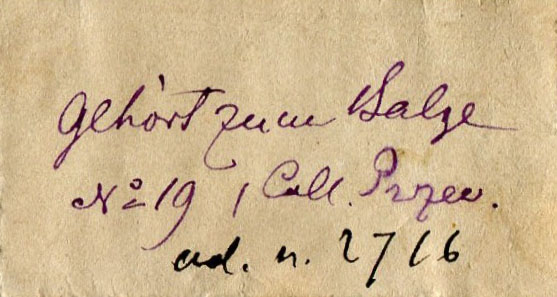 Gehört zum Balge
No 19, Coll. Przew.
ad. n. 2716